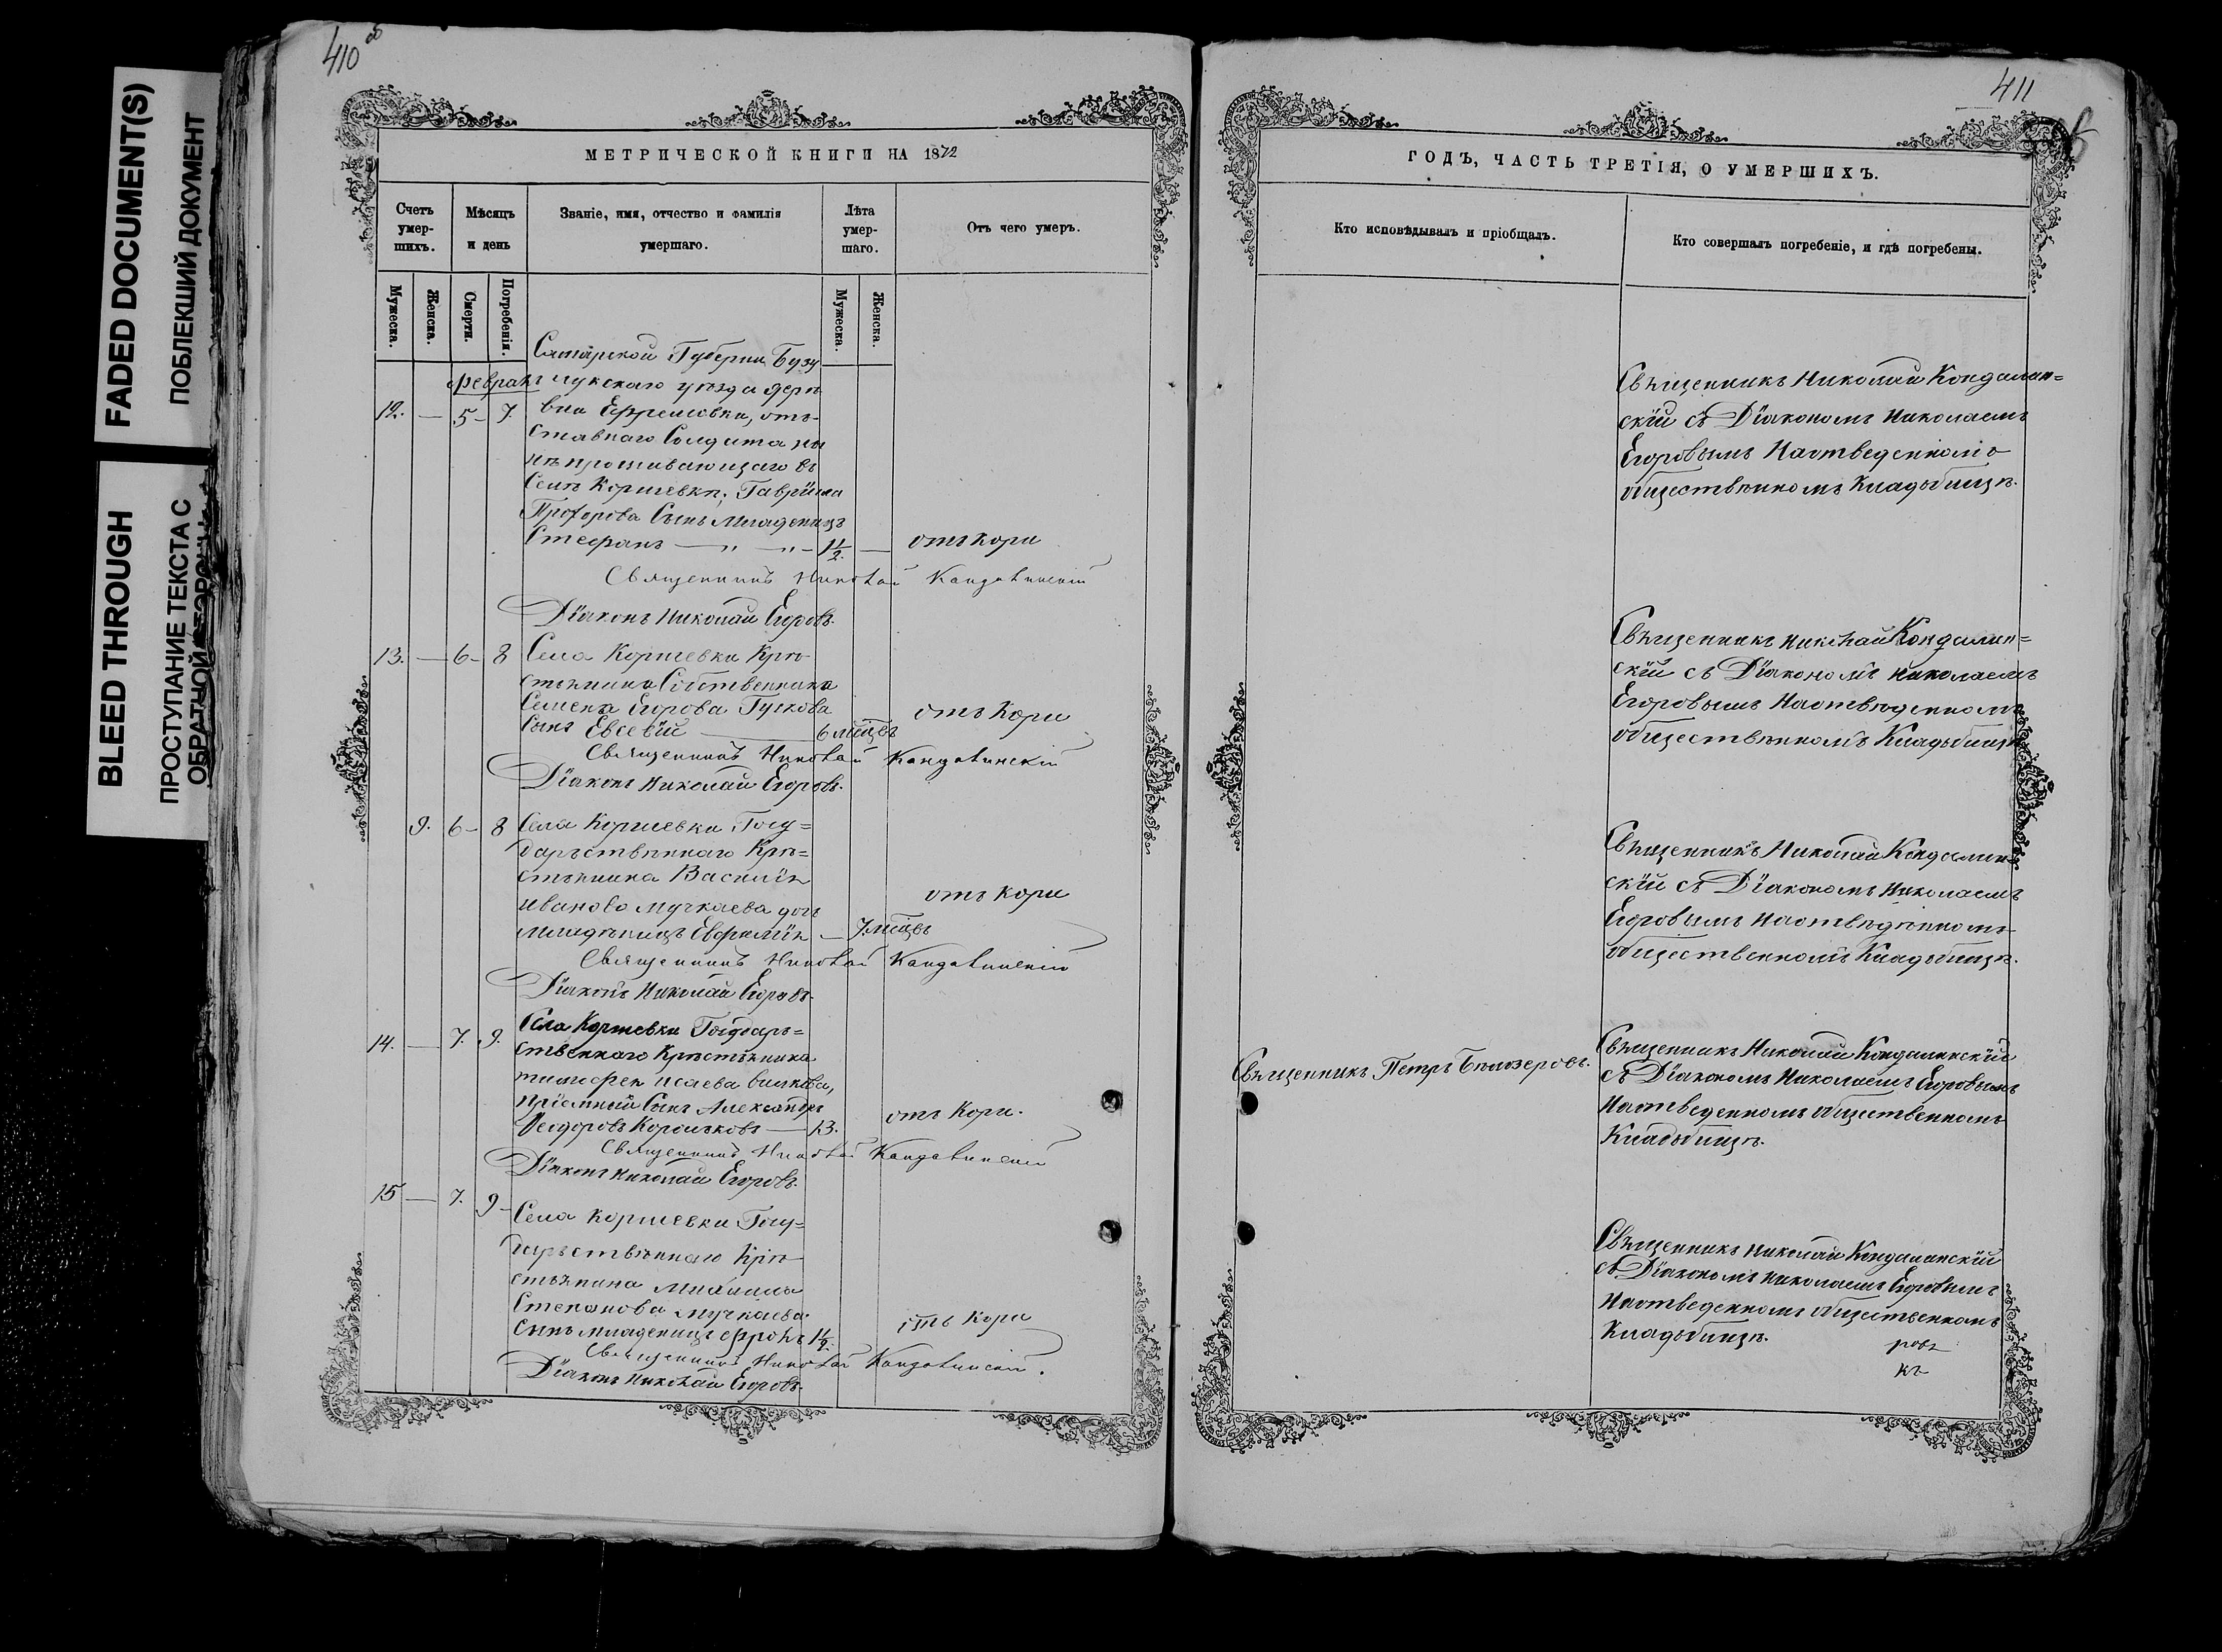 FADED DOCUMENT(S)
ПОБЛЕКШИЙ ДОКУМЕНТ
BLEED THROUGH
ПРОСТУПАНИЕ ТЕКСТА С
ОБРАТНОЙ СТОРОНЫ
410 об
МЕТРИЧЕСКОЙ КНИГИ НА 1872
Счетъ умер-шихъ.
Мѣсяцъ и день
Званіе, имя, отчество и фамилія умершаго.
Лѣта умер-шаго.
Отъ чего умеръ.
Мужеска.
Женска.
Смерти.
Погребенія.
Мужеска.
Женска.
Самарской Губерни Бузу
Февраль лукскаго уѣзда дерѣ
12. — 5 - 7. вни Ефремовки, отъ-
ставнаго Солдата ны
нѣ проживающаго въ
Селѣ Коржевкѣ, Гавріила
Прохорова Сынъ Младенецъ
Стефанъ — „ — „ — 1 1/2. — отъ кори
Священникъ Николай Кандалинскій
Діаконъ Николай Егоровъ.
13. — 6 - 8 Села Коржевки Крѣ-
стьянина Собственника
Семена Егорова Гускова
сынъ Евсевій — 6 мѣсцвъ отъ Кори
Священникъ Николай Кандалинскій
Діаконъ Николай Егоровъ.
9. 6 - 8 Села Коржевки Госу=
дарьственнаго Крѣ=
стьянина Василія
Иванова Мучкаева дочь
младѣницъ Евфимія — 7. мѣсцвъ отъ кори
Священникъ Николай Кандалинскій
Діаконъ Николай Егоровъ.
14. — 7. 9. Села Коржевки Государъ=
ственнаго Крѣстьянина
Тимофея Исаева
пріемный Сынъ Александръ
Феодоровъ Корольковъ — 13. отъ Кори.
Священникъ Николай Кандалинскій
Діаконъ Николай Егоровъ.
15 — 7. 9 - Села Коржевки Госу=
дарьствѣннаго Крѣ-
стьянина Михаила
Степанова Мучкаева
сынъ младеницъ Фролъ 1 1/2. отъ Кори
Священникъ Николай Кандалинскій.
Діаконъ Николай Егоровъ.
411
ГОДЪ, ЧАСТЬ ТРЕТІЯ, О УМЕРШИХЪ.
Кто исповѣдывалъ и пріобщалъ.
Кто совершалъ погребеніе, и гдѣ погребены.
Свѣщенникъ Николай Кондалин=
скій съ Діакономъ Николаемъ
Егоровымъ На отведенномъ
общественномъ Кладъбищѣ.
Свѣщенникъ Николай Кондалин=
скій съ Діакономъ Николаемъ
Егоровымъ На отвѣденномъ
обществѣнномъ Кладьбищѣ
Свѣщенникъ Николай Кондалин=
скій съ Діакономъ Николаемъ
Егоровымъ На отвѣдѣнномъ
общественномъ Кладьбищѣ.
Свѣщенникъ Петръ Бѣлозеровъ.
Свѣщенникъ Николай Кондалинскій
съ Діакономъ Николаемъ Егоровымъ
На отведенномъ общественномъ
Кладьбищѣ.
Свѣщенникъ Николай Кондалинскій
съ Діакономъ Николаемъ Егоровымъ
На отведенномъ общественномъ
Кладьбищѣ.
ровъ
къ